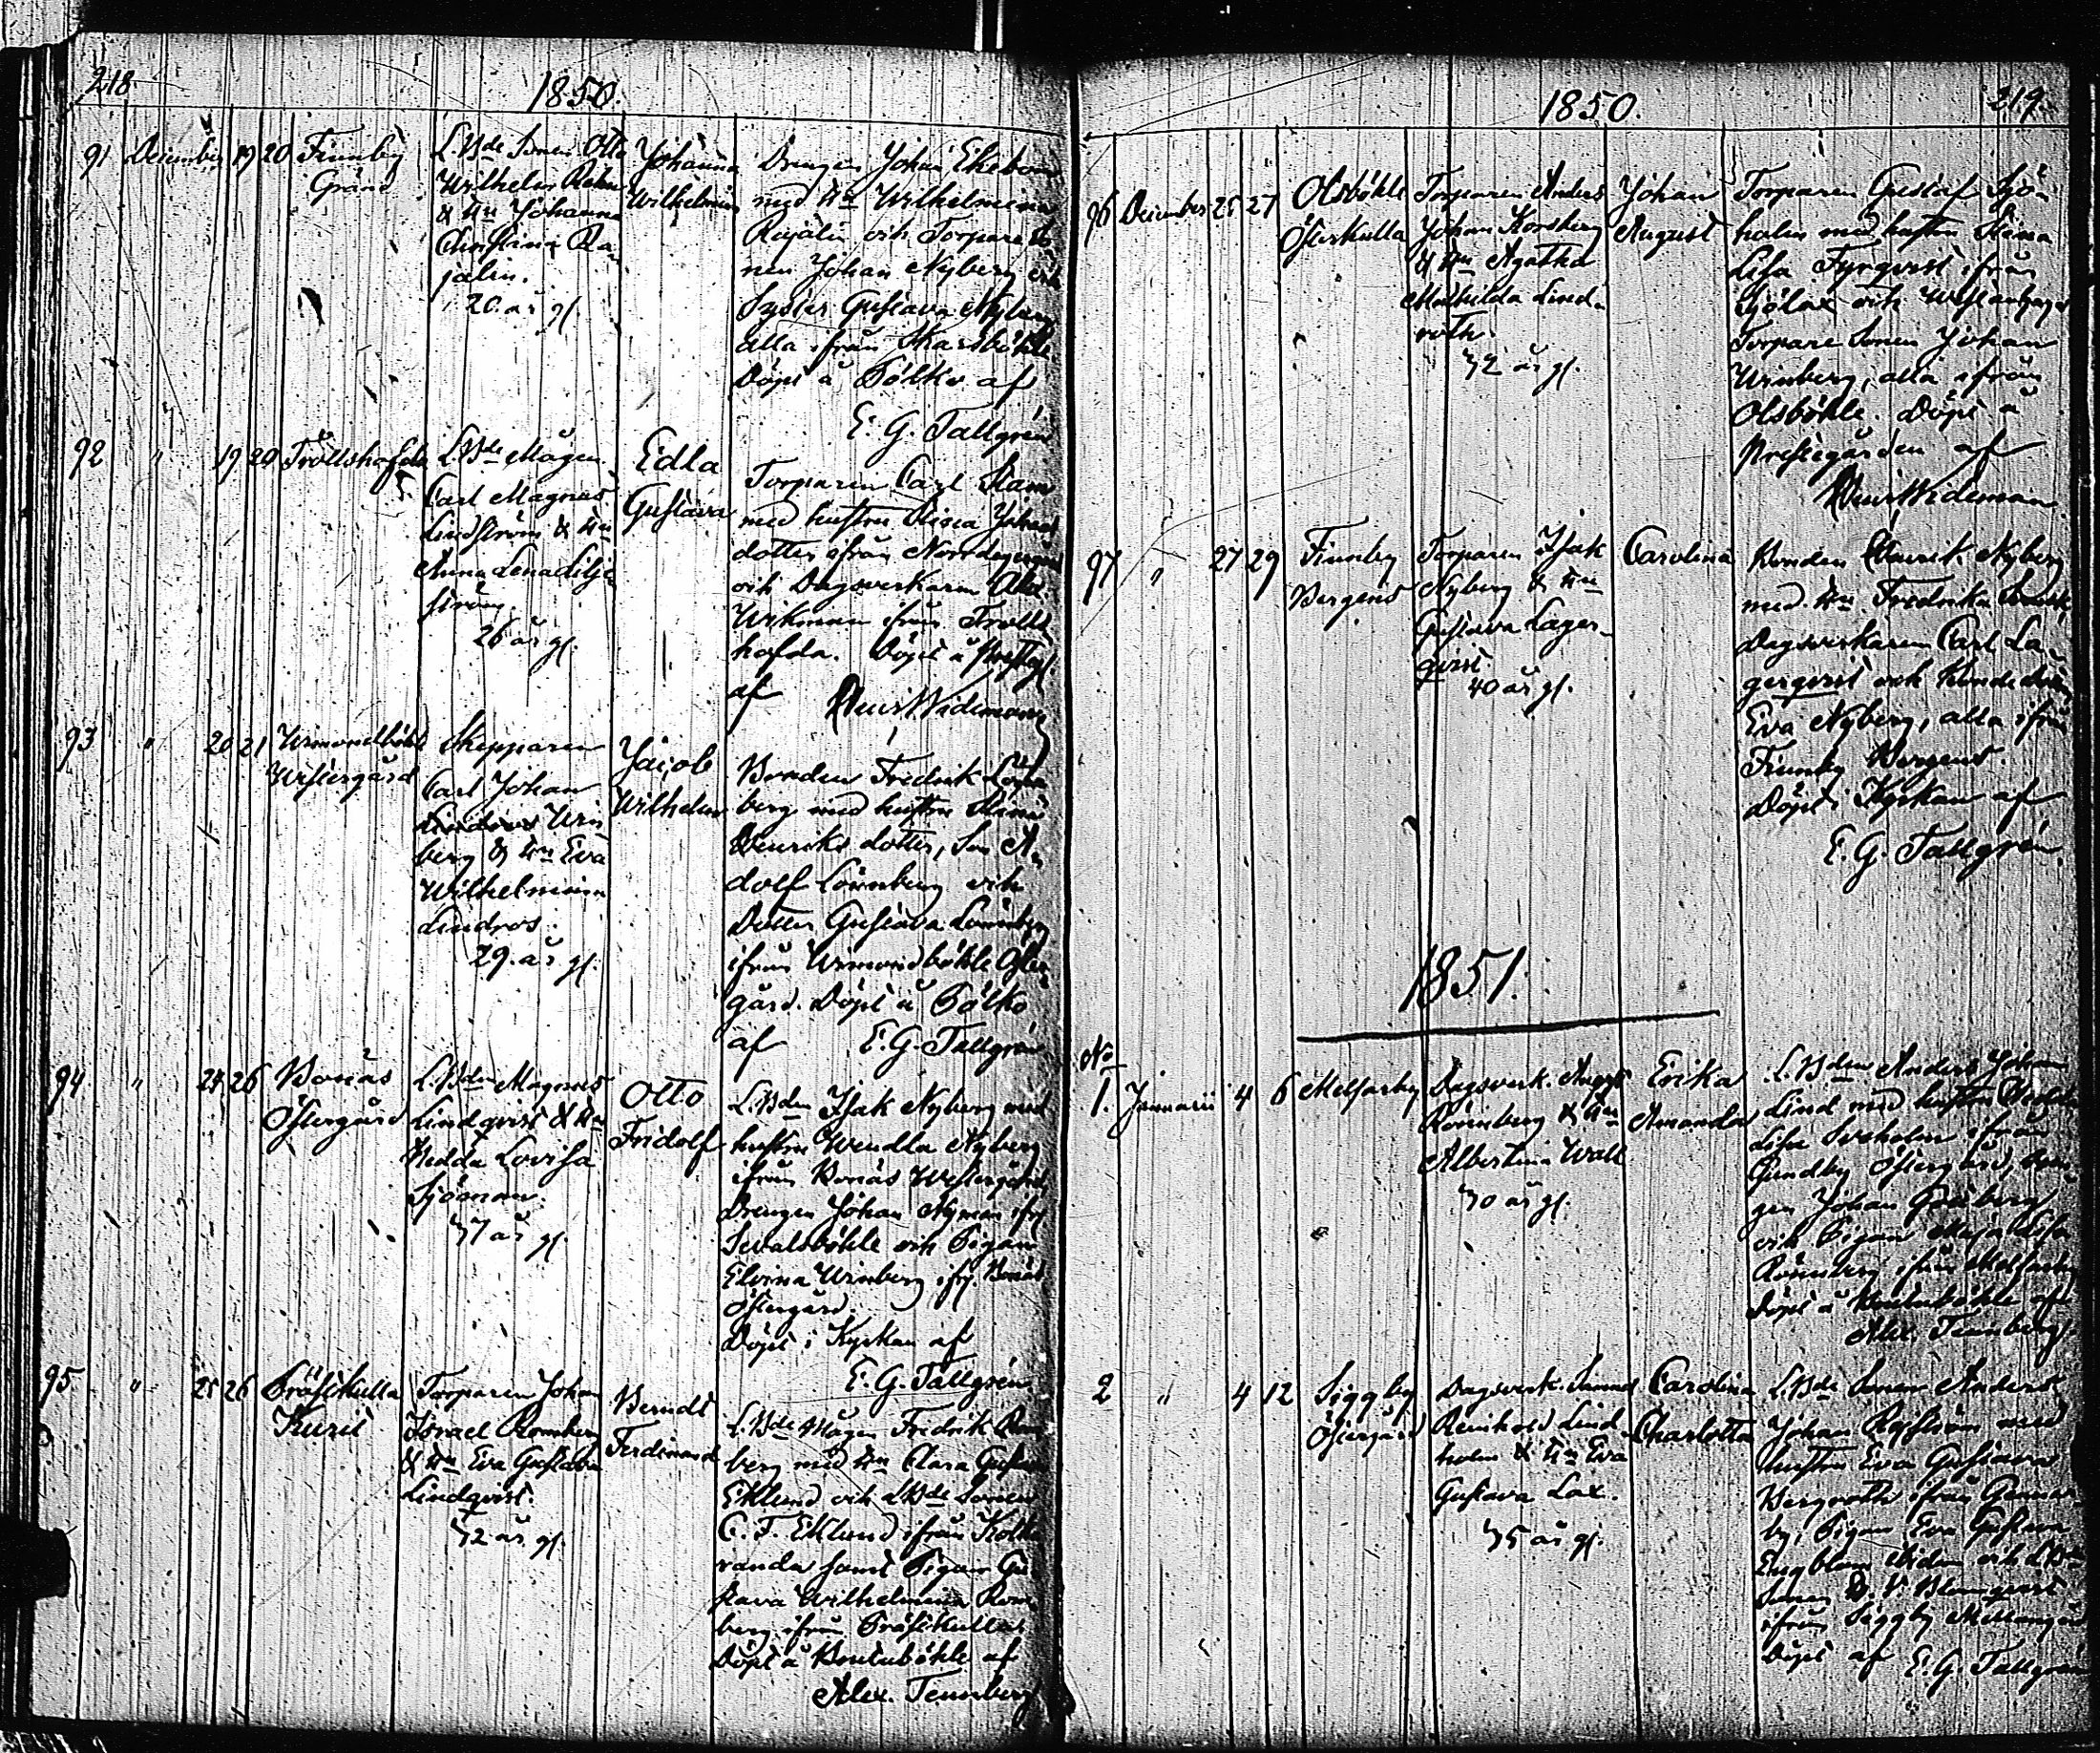 218
1850.
91 December 19 20 Finnby
Gränd
L.Bde Sonen Otto
Wilhelm
& Hu Johanna
Christina Ra
jalin.
20 år gl.
Johanna
Wilhelmina
Drengen Johan Ekebom
med Hu Wilhelmina
Rajalin och Torpare So
nen Johan Nyberg och
Syster Gustava Nyberg
alla ifrån Skarsböhle.
Döpt å Pölkö af
E. G. Tallgrén
92 " 19 20 Trollshofda
L.Bde Mågen
Carl Magnus
Lindström & Hu
Anna Lena Lilje
ström.
26 år gl.
Edla
Gustava
Torparen Carl Stam
med hustru Johans
dotter ifrån
och Dagsverkaren
Wikman ifrån Trolls
hofda. Döpt å Prestg.
af Widemann
93 " 20 21
Westergård
Skepparen
Carl Johan
Win
berg & Hu Eva
Wilhelmina
Lindros.
29 år gl.
Jacob
Wilhelm
Bonden Fredrik Lönn
berg med hustru Stina
Henriks dotter, Son A
dolf Lönnberg och
Dotter Gustava Lönnberg
ifrån Öster
gård. Döpt å Pölkö
af E. G. Tallgrén
94 " 24 26 Bonäs
Östergård
L.Bden Magnus
Lindqvist & Hu
Hedda Lovisa
Sjöman.
37 år gl.
Otto
Fridolf
L.Bden Isak Nyberg med
hustru Wendla Nyberg
ifrån Bonäs Westergård,
Drengen Johan Nyman ifr.
Sevalsböhle och Pigan
Elvina Winberg ifr. Bonäs
Östergård.
Döpt i Kyrkan af
E. G. Tallgrén.
95 " 25 26 Prästkulla
Kurit
Torparen Johan
Israel Romberg
& Hu Eva Gustava
Lindqvist.
32 år gl.
Berndt
Ferdinand
L.Bde Mågen Fredrik Rom
berg med Hu Clara Gustava
Eklund och L.Bde Sonen
C. F. Eklund ifrån
samt Pigan Gu
stava Wilhelmina Rom
berg ifrån Prästkulla.
Döpt å af
Alex. Tennberg
1850.
219
96 December 25 27 Olsböhle
Österkulla
Torparen Anders
Johan Korsberg
& Hu Agatha
Mathilda Lind
roth.
32 år gl.
Johan
August
Torparen Gustaf Sjö
holm med hustru Stina
Lisa Fyrqvist ifrån
Sjölax och
Torpare Sonen Johan
Winberg, alla ifrån
Olsböhle. Döpt å
Prestegården af
Widemann
97 " 27 29 Finnby
Bergens
Torparen Isak
Nyberg & Hu
Gustava Lager
qvist.
40 år gl.
Carolina
Bonden Henrik Nyberg
med Hu Fredrika
Dagsverkaren Carl La
gerqvist och
Eva Nyberg, alla ifrån
Finnby Bergens.
Döpt i Kyrkan af
E. G. Tallgrén.
1851.
No
1. Januarii 4 6 Melfarby
Dagsverk. August
Rönnberg & Hu
Albertina Wall
30 år gl.
Erika
Amanda
L.Bden Anders Johan
Lind med hustru Hedda
Lisa ifrån
Gundby Östergård, Dren
gen Johan Gröberg
och Pigan Maja Lisa
Rönnberg ifrån Melfarby
Döpt å af
Alex. Tennberg
2 " 4 12 Siggby
Östergård
Dagsverk.
Reinhold Lind
holm & Hu Eva
Gustava Lax.
35 år gl.
Carolina
Charlotta
L.Bde Sonen Anders
Johan Nyström med
hustru Eva Gustava
Bergroth ifrån
by, Pigan Eva Gustava
Engblom ibidem och L.Bde
Sonen Blomqvist
ifrån Siggby Mellangård
Döpt af E. G. Tallgrén